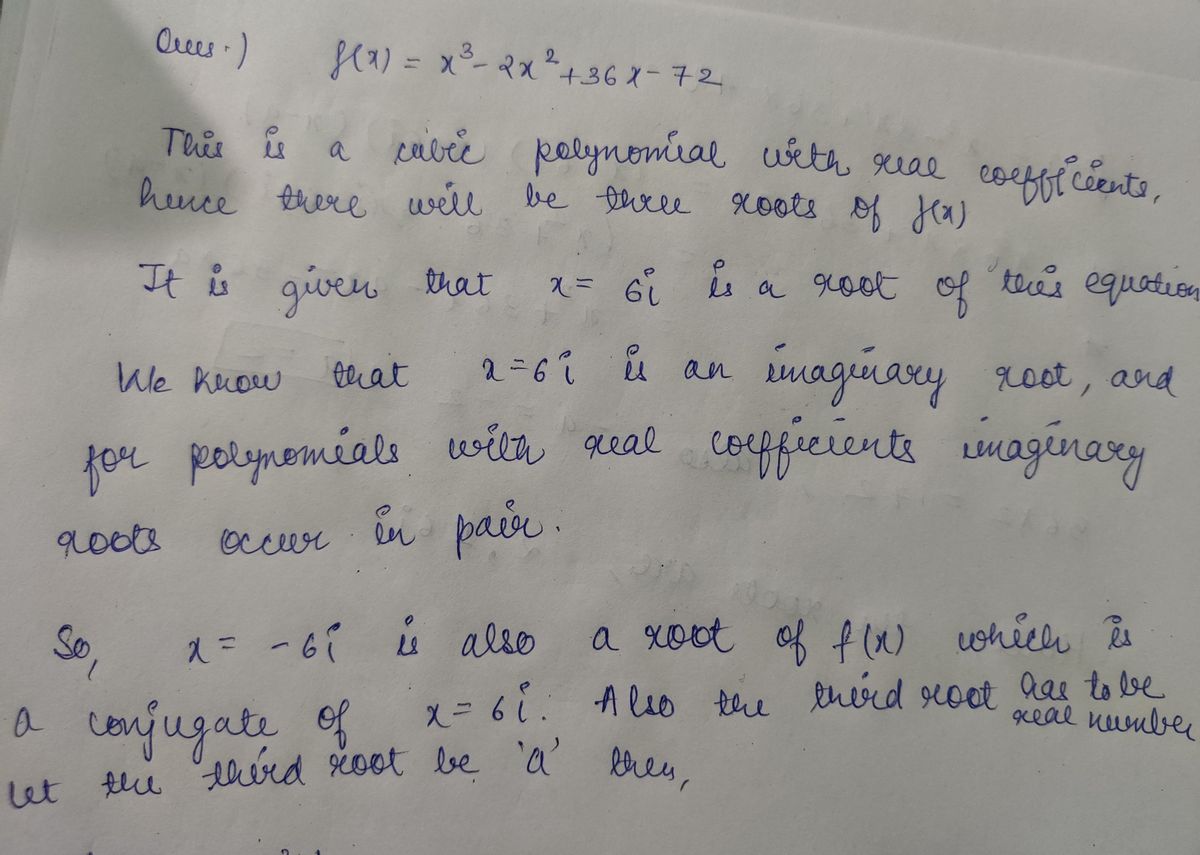 Ques.) f(x) = x³ - 2x² + 36x - 72
This is a cubic polynomial with real coefficients,
hence there will be three roots of f(x)
It is given that x = 6i is a root of this equation
We know that x = 6i is an imaginary root, and
for polynomials with real coefficients imaginary
roots occur in pair.
So, x = -6i is also a root of f(x) which is
a conjugate of x = 6i. Also the third root has to be
real number
let the third root be 'a' then,